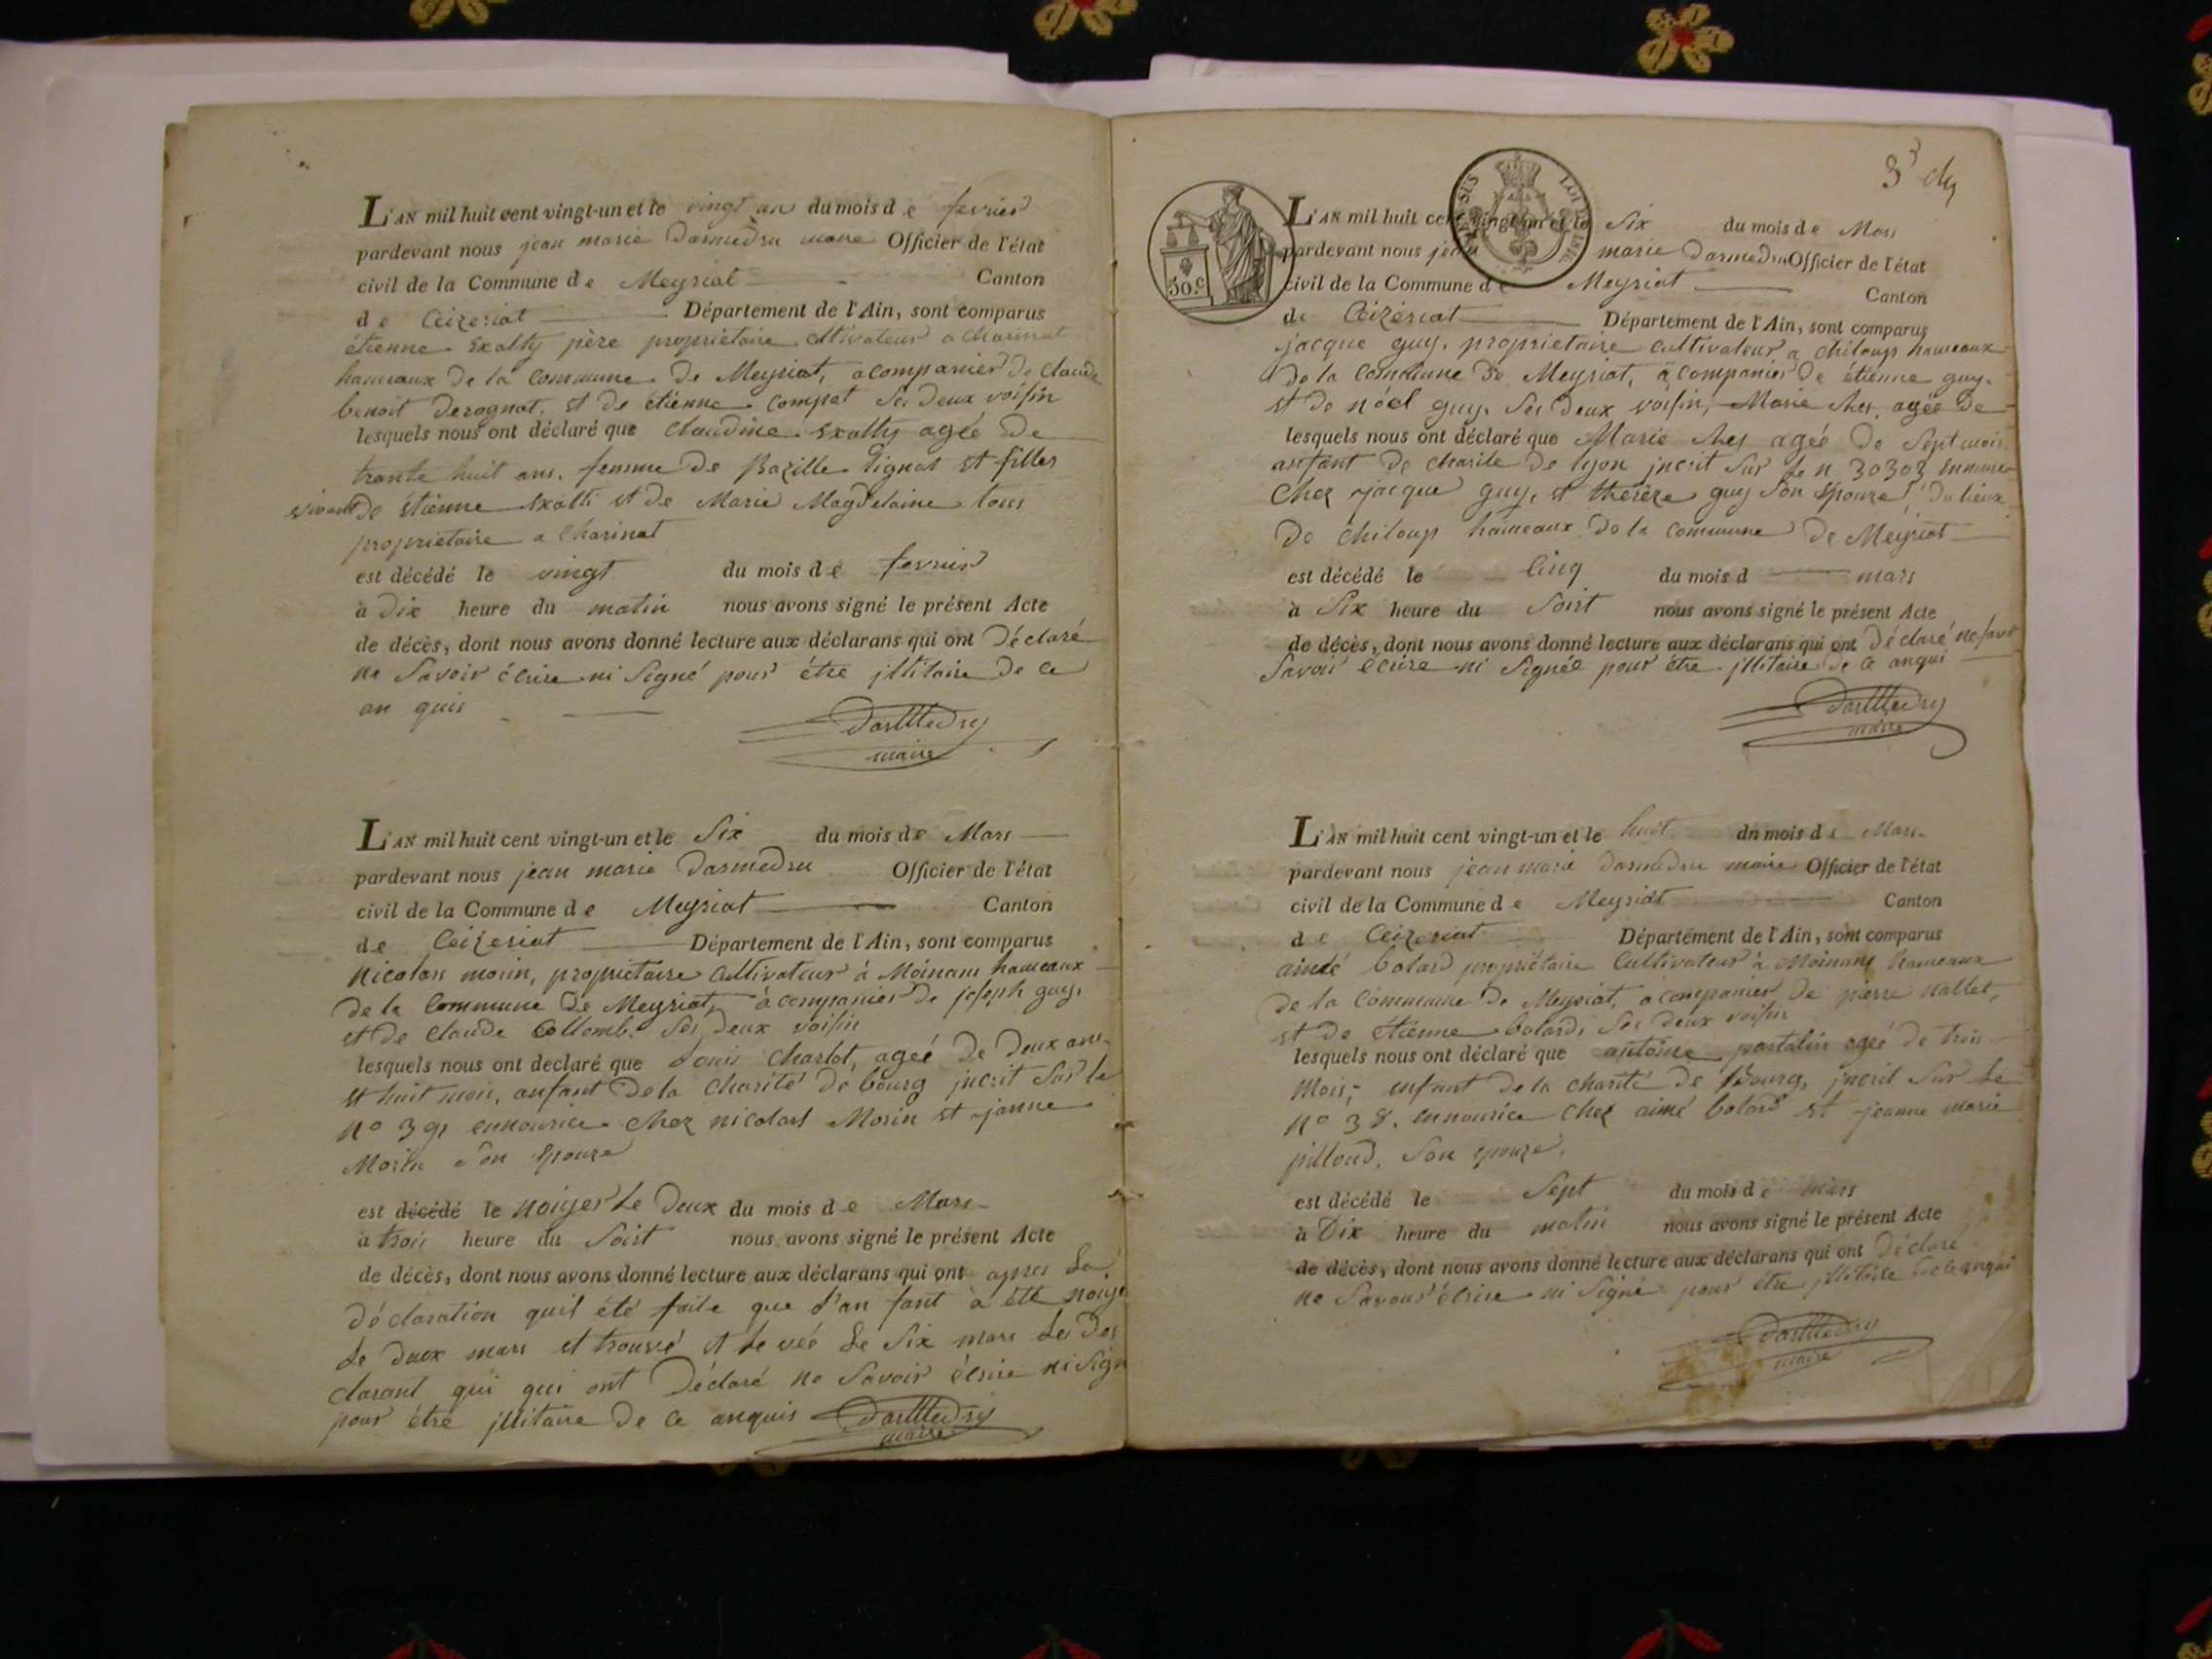 L'AN mil huit cent vingt-un et le vingt un du mois de fevrier
pardevant nous jean marie Darmedru maire Officier de l'état
civil de la Commune de Meyriat Canton
de Ceizeriat Département de l'Ain, sont comparus
étienne Exalty père propriétaire cltivateur a charinat
hameaux De la commune De Meyriat, acompanier De claude
benoit Derognat. et De étienne compet Ses Deux voisin
lesquels nous ont déclaré que claudine Exalty agée De
trante huit ans. femme De Bazille tignat et filles
vivant De étienne Exalti et De Marie Magdelaine tous
propriétaire a Charinat
est décédé le vingt du mois de fevrier
à Dix heure du matin nous avons signé le présent Acte
de décès, dont nous avons donné lecture aux déclarans qui ont Déclaré
ne Savoir écrire ni Signé pour être jllitaire De ce
an quis
Darmedru
maire
L'AN mil huit cent vingt-un et le Six du mois de Mars
pardevant nous jean marie Darmedru Officier de l'état
civil de la Commune de Meyriat Canton
de Ceizeriat Département de l'Ain, sont comparus
nicolars morin, propriétaire cultivateur à Moinans hameaux
De la Commune De Meyriat, àcompanier De joseph guy,
et De claude Collomb. Ses Deux voisin
lesquels nous ont declaré que Louis charlot, ageé De Deux ans
et huit mois, anfant De la charité De bourg jncrit Sur le
no 391 ennourice chez nicolars Morin et janne
Morin Son Epouze
est décédé le noiyer Le Deux du mois de Mars
à trois heure du Soirt nous avons signé le présent Acte
de décès, dont nous avons donné lecture aux déclarans qui ont apres La
Déclaration quil été faite que L'an fant à été noiye
Le Deux mars et trouvé et Le vée Le Six mars Le Des
clarant qui qui ont Déclaré ne Savoir écrire ni Sign
pour être jllitaire De ce anquis Darmedru
maire
3 dy
50.c
L'AN mil huit cent vingt-un et le Six du mois de Mars
pardevant nous jean marie Darmedru Officier de l'état
civil de la Commune de Meyriat Canton
de Ceizériat Département de l'Ain, sont comparus
jacque guy. propriétaire cultivateur a chiloup hameaux
De la Commune De Meyriat, àcompanier De étienne guy.
et De noél guy. Ses Deux voisin, Marie ches, agée De
lesquels nous ont déclaré que Marie ches agée De Sept mois
anfant De charite De lyon jncrit Sur Le n 30303 ennource
Chez jacque guy, et thereze guy Son Epouze, Du lieux
De chiloup hameaux De la commune De Meyriat
est décédé le Cinq du mois d mars
à Six heure du Soirt nous avons signé le présent Acte
de décès, dont nous avons donné lecture aux déclarans qui ont Déclaré ne
Savoir écrire ni Signée pour être jllitaire De ce anqui
Darmedru
maire
L'AN mil huit cent vingt-un et le huit dn mois de Mars
pardevant nous jean marie Darmedru maire Officier de l'état
civil de la Commune de Meyriat Canton
de Ceizeriat Département de l'Ain, sont comparus
aimé bolard propriétaire Cultivateur à Moinans hameaux
de la Commune De Meyriat, acompanier De pierre nallet,
et De étienne bolard, Ses Deux voisin
lesquels nous ont déclaré que antoine portalin ageé De trois
Mois, enfant De la charité De Bourg, jncrit Sur Le
no 38. ennourice chez aimé bolard et jeanne marie
pilloud. Son epouze.
est décédé le Sept du mois de mars
à Dix heure du matin nous avons signé le présent Acte
de décès, dont nous avons donné lecture aux déclarans qui ont Déclaré
ne Savoir écrire ni Signé pour être jllitaire De ce anqui
Darmedru
maire